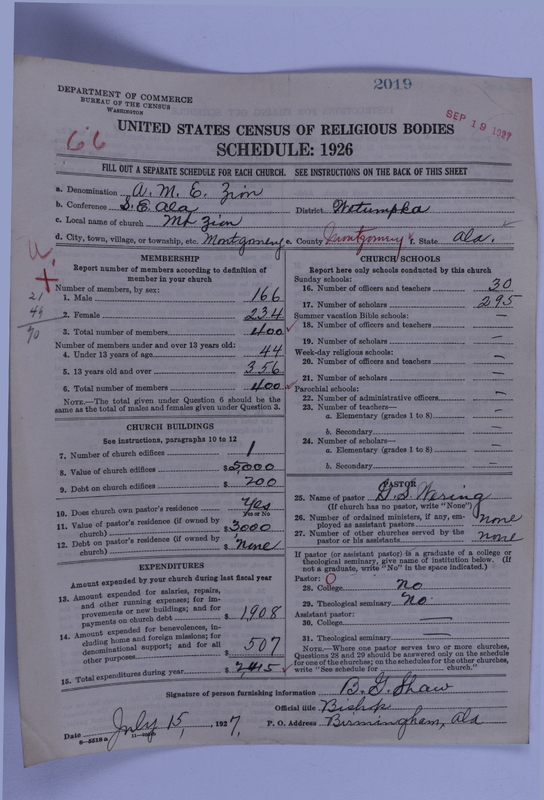 2019
DEPARTMENT OF COMMERCE
BUREAU OF THE CENSUS
WASHINGTON
SEP 19 1927
66
UNITED STATES CENSUS OF RELIGIOUS BODIES
SCHEDULE: 1926
FILL OUT A SEPARATE SCHEDULE FOR EACH CHURCH. SEE INSTRUCTIONS ON THE BACK OF THIS SHEET
a. Denomination A. M. E. Zion
b. Conference S. E. Ala District Wetumpka
c. Local name of church Mt Zion
d. City, town, village, or township, etc. Montgomery e. County Montgomery f. State Ala.
MEMBERSHIP
Report number of members according to definition of member in your church
Number of members, by sex:
1. Male 166
2. Female 234
3. Total number of members 400
Number of members under and over 13 years old:
4. Under 13 years of age 44
5. 13 years old and over 356
6. Total number of members 400
NOTE.—The total given under Question 6 should be the same as the total of males and females given under Question 3.
CHURCH BUILDINGS
See instructions, paragraphs 10 to 12
7. Number of church edifices 1
8. Value of church edifices $5,000
9. Debt on church edifices $ 700
10. Does church own pastor's residence Yes
Yes or No
11. Value of pastor's residence (if owned by church) $3000
12. Debt on pastor's residence (if owned by church) $ None
EXPENDITURES
Amount expended by your church during last fiscal year
13. Amount expended for salaries, repairs, and other running expenses; for improvements or new buildings; and for payments on church debt $ 1908
14. Amount expended for benevolences, including home and foreign missions; for denominational support; and for all other purposes $ 507
15. Total expenditures during year $ 2,415
CHURCH SCHOOLS
Report here only schools conducted by this church
Sunday schools:
16. Number of officers and teachers 30
17. Number of scholars 295
Summer vacation Bible schools:
18. Number of officers and teachers —
19. Number of scholars —
Week-day religious schools:
20. Number of officers and teachers —
21. Number of scholars —
Parochial schools:
22. Number of administrative officers —
23. Number of teachers—
a. Elementary (grades 1 to 8) —
b. Secondary —
24. Number of scholars—
a. Elementary (grades 1 to 8) —
b. Secondary —
PASTOR
25. Name of pastor
(If church has no pastor, write "None")
26. Number of ordained ministers, if any, employed as assistant pastors none
27. Number of other churches served by the pastor or his assistants none
If pastor (or assistant pastor) is a graduate of a college or theological seminary, give name of institution below. (If not a graduate, write "No" in the space indicated.)
Pastor:
28. College No
29. Theological seminary No
Assistant pastor:
30. College —
31. Theological seminary —
NOTE.—Where one pastor serves two or more churches, Questions 28 and 29 should be answered only on the schedule for one of the churches; on the schedules for the other churches, write "See schedule for church."
Signature of person furnishing information B. G. Shaw
Official title Bishop
Date July 15, 1927. P. O. Address Birmingham, Ala